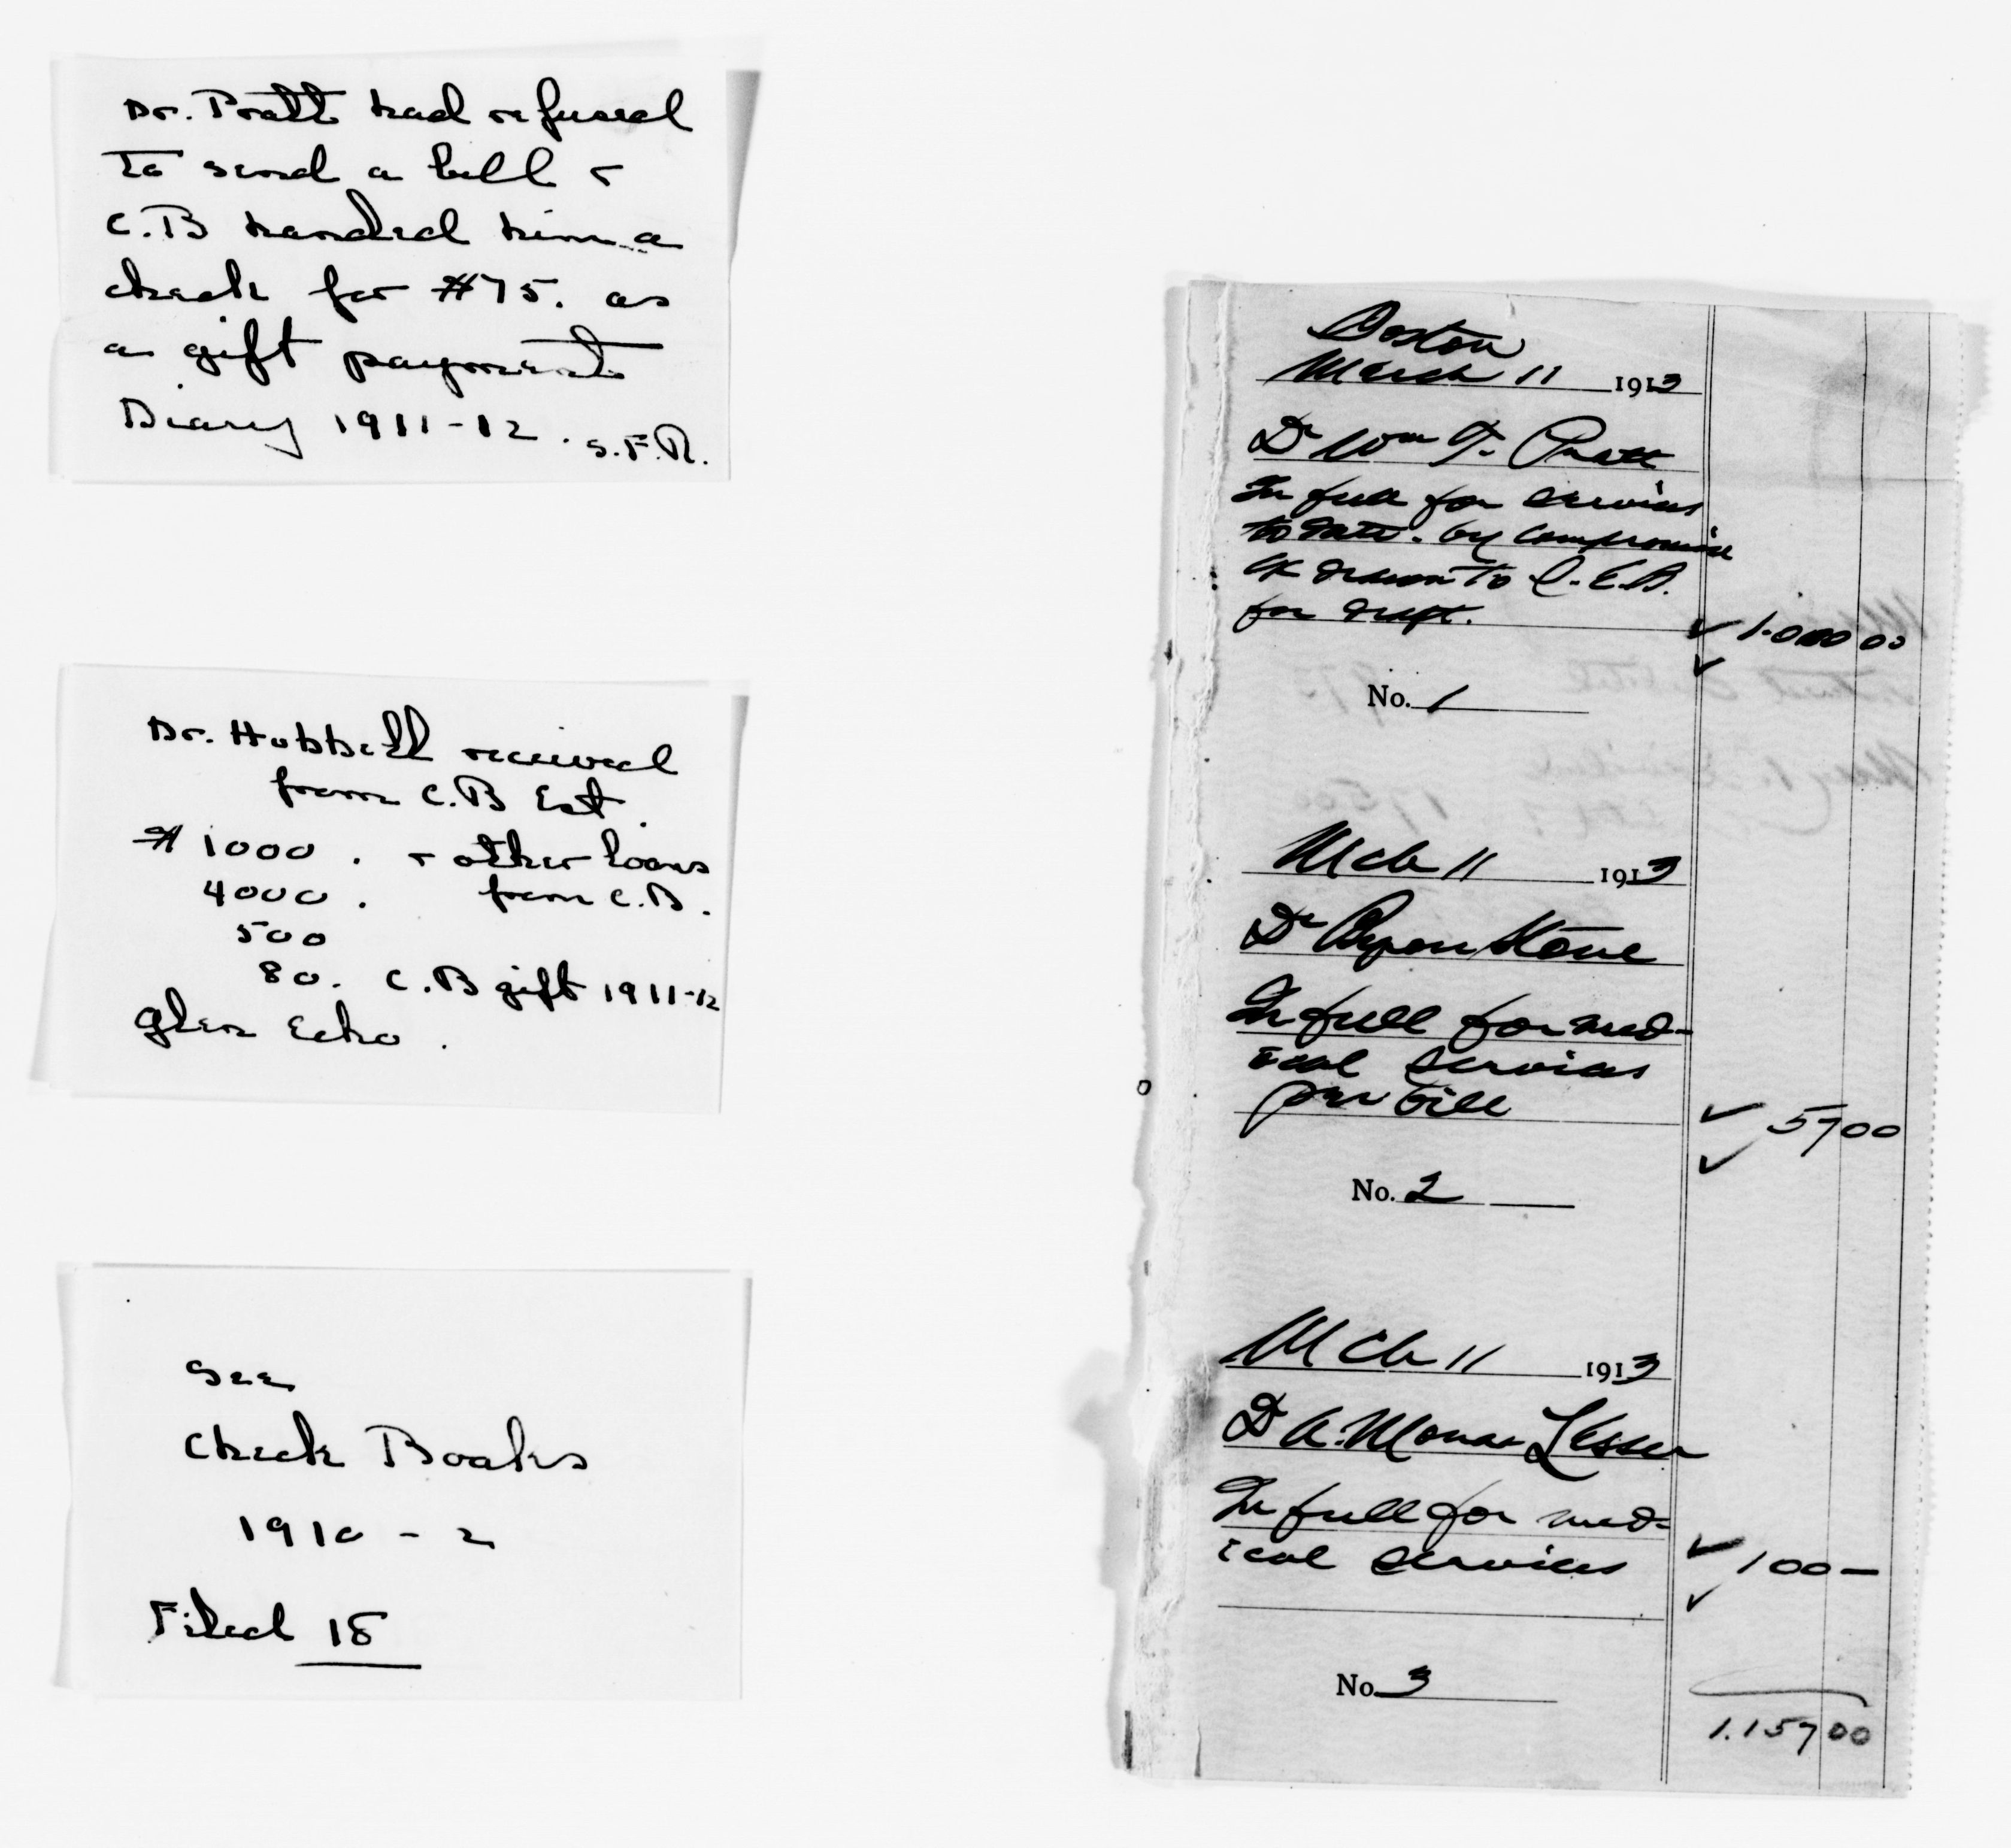 Dr. Pratt had refused
to send a bill &
C.B handed him a
check for $75. as
a gift payment
Diary 1911-12. S.F.R.
Dr. Hubbell received
from C.B Est.
$1000. & other loans
4000. from C.B.
500
80. C.B gift 1911-12
Glen Echo.
See
Check Books
1910-2
Filed 18
Boston
March 11 1913
Dr Wm T. Pratt
In full for services
to date. by compromise
ck drawn to C.E.B.
for draft.
1.000 00
No. 1
Mch 11 1913
Dr Byron Stone
In full for med-
ical services
per bill
57 00
No. 2
Mch 11 1913
Dr A. Monae Lesser
In full for med-
ical services
100 —
No. 3
1.157 00